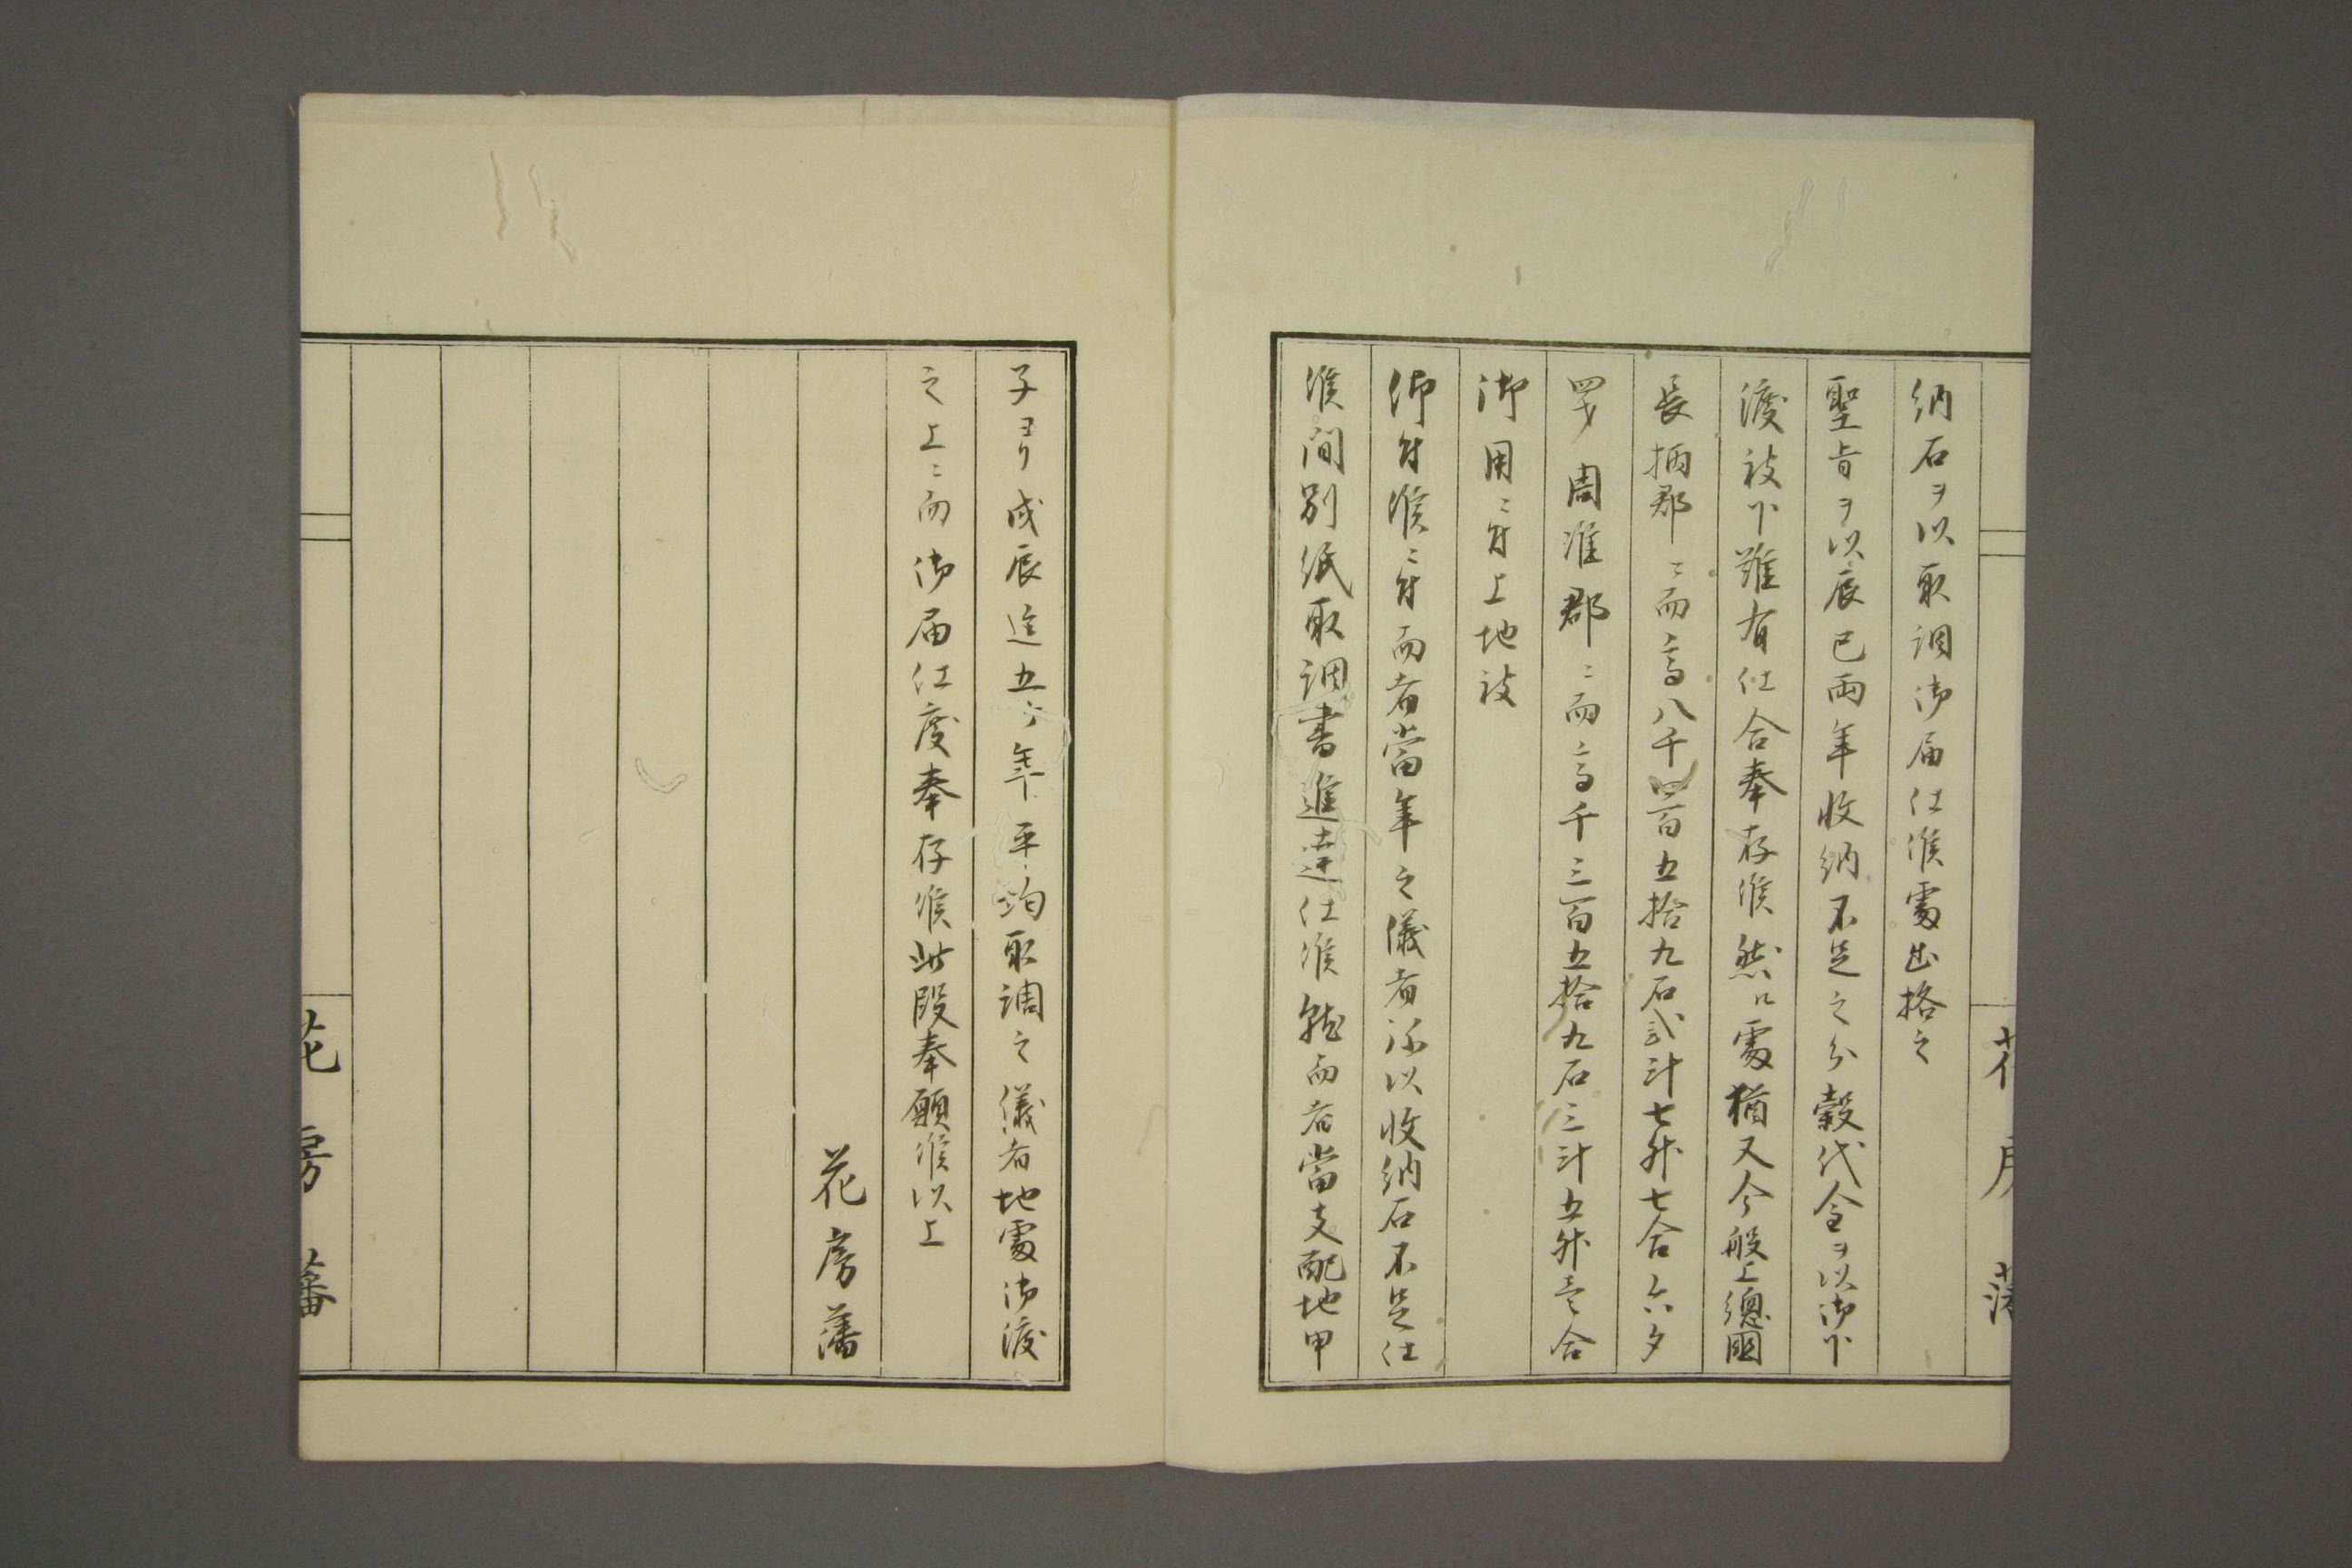 納石ヲ以取調御届仕候處出格之
聖旨ヲ以辰巳両年收納不足之分穀代金ヲ以御下
渡被下難有仕合奉存候然ル處猶又今般上總國
長柄郡ニ而高八千四百五拾九石弐斗七升七合六夕
四才周淮郡ニ而高千三百五拾九石三斗五升壱合
御用ニ付上地被
仰付候ニ付而者當年之儀者弥以收納石不足仕
候間別紙取調書進達仕候就而者當支配地甲
花房藩
子ヨリ戊辰迄五ケ年平均取調之儀者地處御渡
之上ニ而御届仕度奉存候此段奉願候以上
花房藩
花房藩